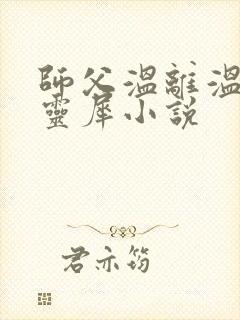 師父溫離溫
靈犀小說
君亦筠